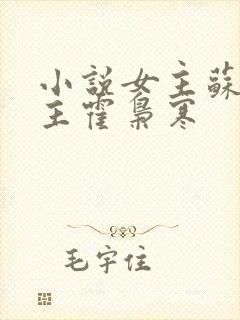 小說女主蘇
主霍梟寒
毛宇住